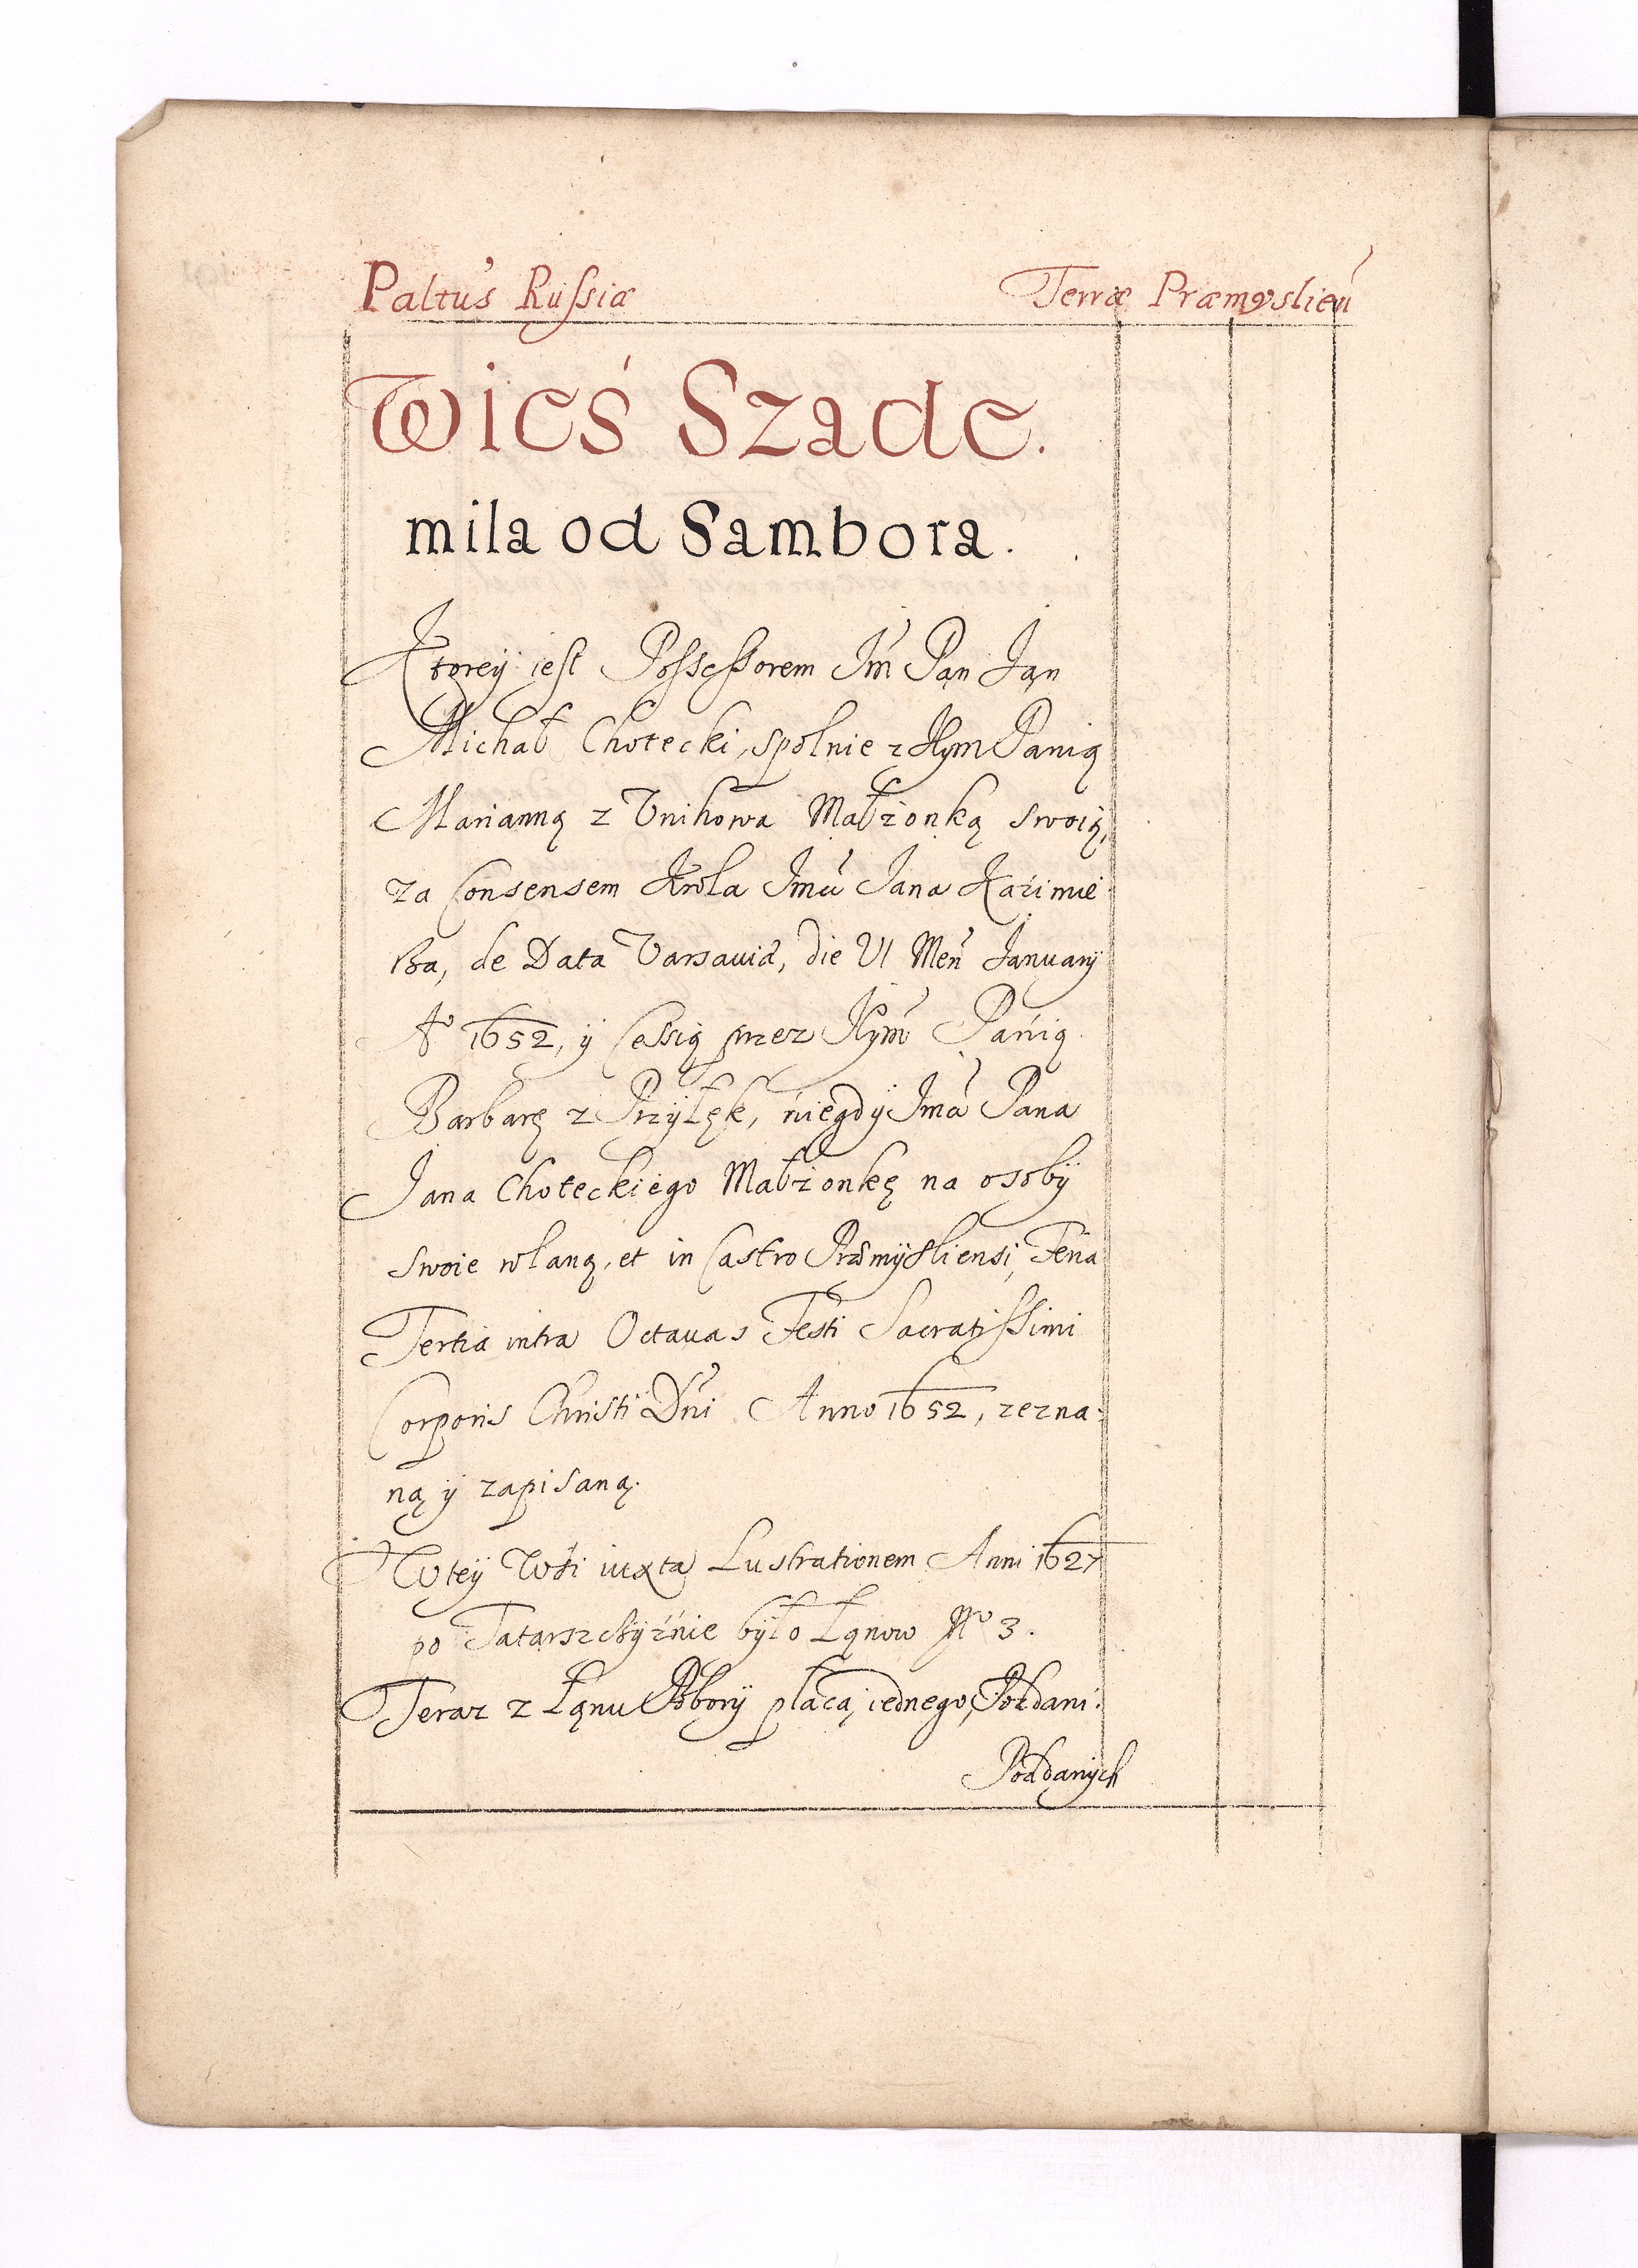 Paltus Russiæ Terræ Præmyslień
Wieś Szade.
mila od Sambora.
Ktorey iest Possessorem Jm̃ Pąn Jąn
Michał Chotecki, spolnie z Jeym Panią
Marianną z Unihowa Małżonką swoią,
za Consensem Krola Jmci Jana Kazimie
rza, de Data Varsaviæ, die VI Men Januarij
A° 1652, y Cessią przez Jeym Panią
Barbarę z Przyłęk, niegdy Jmci Pana
Jana Choteckiego Małżonkę na osoby
swoie wlaną, et in Castro Przemysliensi, Feria
Tertia intra Octavas Festi Sacratissimi
Corporis Christi Dni Anno 1652, zezna-
ną y zapisaną.
W tey Wsi iuxta Lustrationem Anni 1627
po Tatarszczyźnie było Łąnow N° 3.
Teraz z Łąnu Pobory płacą iednego, Poddani.
Poddanych